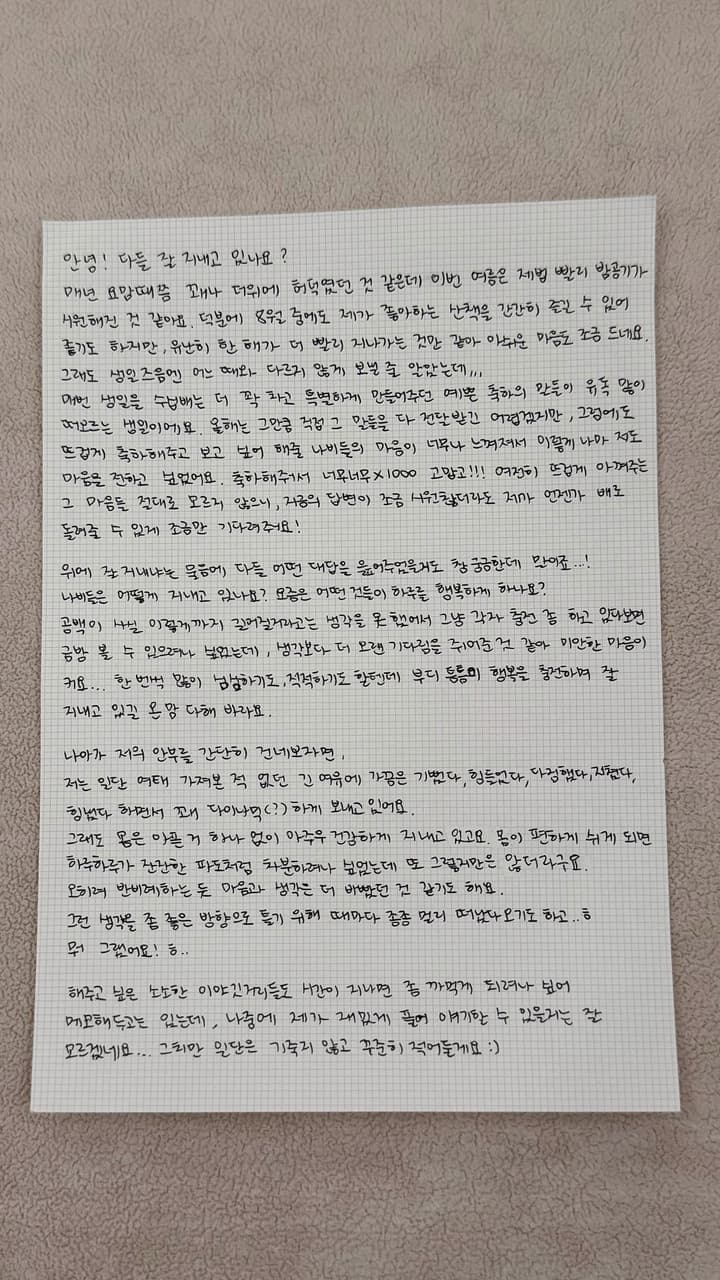 안녕! 다들 잘 지내고 있나요?
매년 요맘때쯤 꽤나 더위에 허덕였던 것 같은데 이번 여름은 제법 빨리 밤공기가
시원해진 것 같아요. 덕분에 8월 중에도 제가 좋아하는 산책을 간간히 즐길 수 있어
좋기도 하지만, 유난히 한 해가 더 빨리 지나가는 것만 같아 아쉬운 마음도 조금 드네요.
그래도 생일즈음엔 어느 때와 다르지 않게 보낼 줄 알았는데,,,
매번 생일을 수십배는 더 꽉 차고 특별하게 만들어주던 예쁜 축하의 말들이 유독 많이
떠오르는 생일이에요. 올해는 그만큼 직접 그 말들을 다 전달받긴 어렵겠지만, 그럼에도
뜨겁게 축하해주고 보고 싶어 해줄 나비들의 마음이 너무나 느껴져서 이렇게 나마 저도
마음을 전하고 싶었어요. 축하해주셔서 너무너무×1000 고맙고!!! 여전히 뜨겁게 아껴주는
그 마음들 절대로 모르지 않으니, 지금의 답변이 조금 시원찮더라도 제가 언젠가 배로
돌려줄 수 있게 조금만 기다려줘요!
위에 잘 지내냐는 물음에 다들 어떤 대답을 읊어주었을지도 참 궁금한데 말이죠...!
나비들은 어떻게 지내고 있나요? 요즘은 어떤 것들이 하루를 행복하게 하나요?
공백이 사실 이렇게까지 길어질거라고는 생각을 못 했어서 그냥 각자 충전 좀 하고 있다보면
금방 볼 수 있으려나 싶었는데, 생각보다 더 오랜 기다림을 쥐어준 것 같아 미안한 마음이
커요... 한 번씩 많이 심심하기도, 적적하기도 할텐데 부디 틈틈이 행복을 충전하며 잘
지내고 있길 온 맘 다해 바라요.
나아가 저의 안부를 간단히 건네보자면,
저는 일단 여태 가져본 적 없던 긴 여유에 가끔은 기뻤다, 힘들었다, 다정했다, 지쳤다,
힘썼다 하면서 꽤 다이나믹(?)하게 보내고 있어요.
그래도 몸은 아픈 거 하나 없이 아주우 건강하게 지내고 있고요. 몸이 편하게 쉬게 되면
하루하루가 잔잔한 파도처럼 차분하려나 싶었는데 또 그렇지만은 않더라구요.
오히려 반비례하는 듯 마음과 생각은 더 바빴던 것 같기도 해요.
그런 생각을 좀 좋은 방향으로 틀기 위해 때마다 종종 멀리 떠났다 오기도 하고..ㅎ
뭐 그랬어요! ㅎ..
해주고 싶은 소소한 이야깃거리들도 시간이 지나면 좀 까먹게 되려나 싶어
메모해두고는 있는데, 나중에 제가 재밌게 풀어 얘기할 수 있을지는 잘
모르겠네요... 그치만 일단은 기죽지 않고 꾸준히 적어둘게요 :)